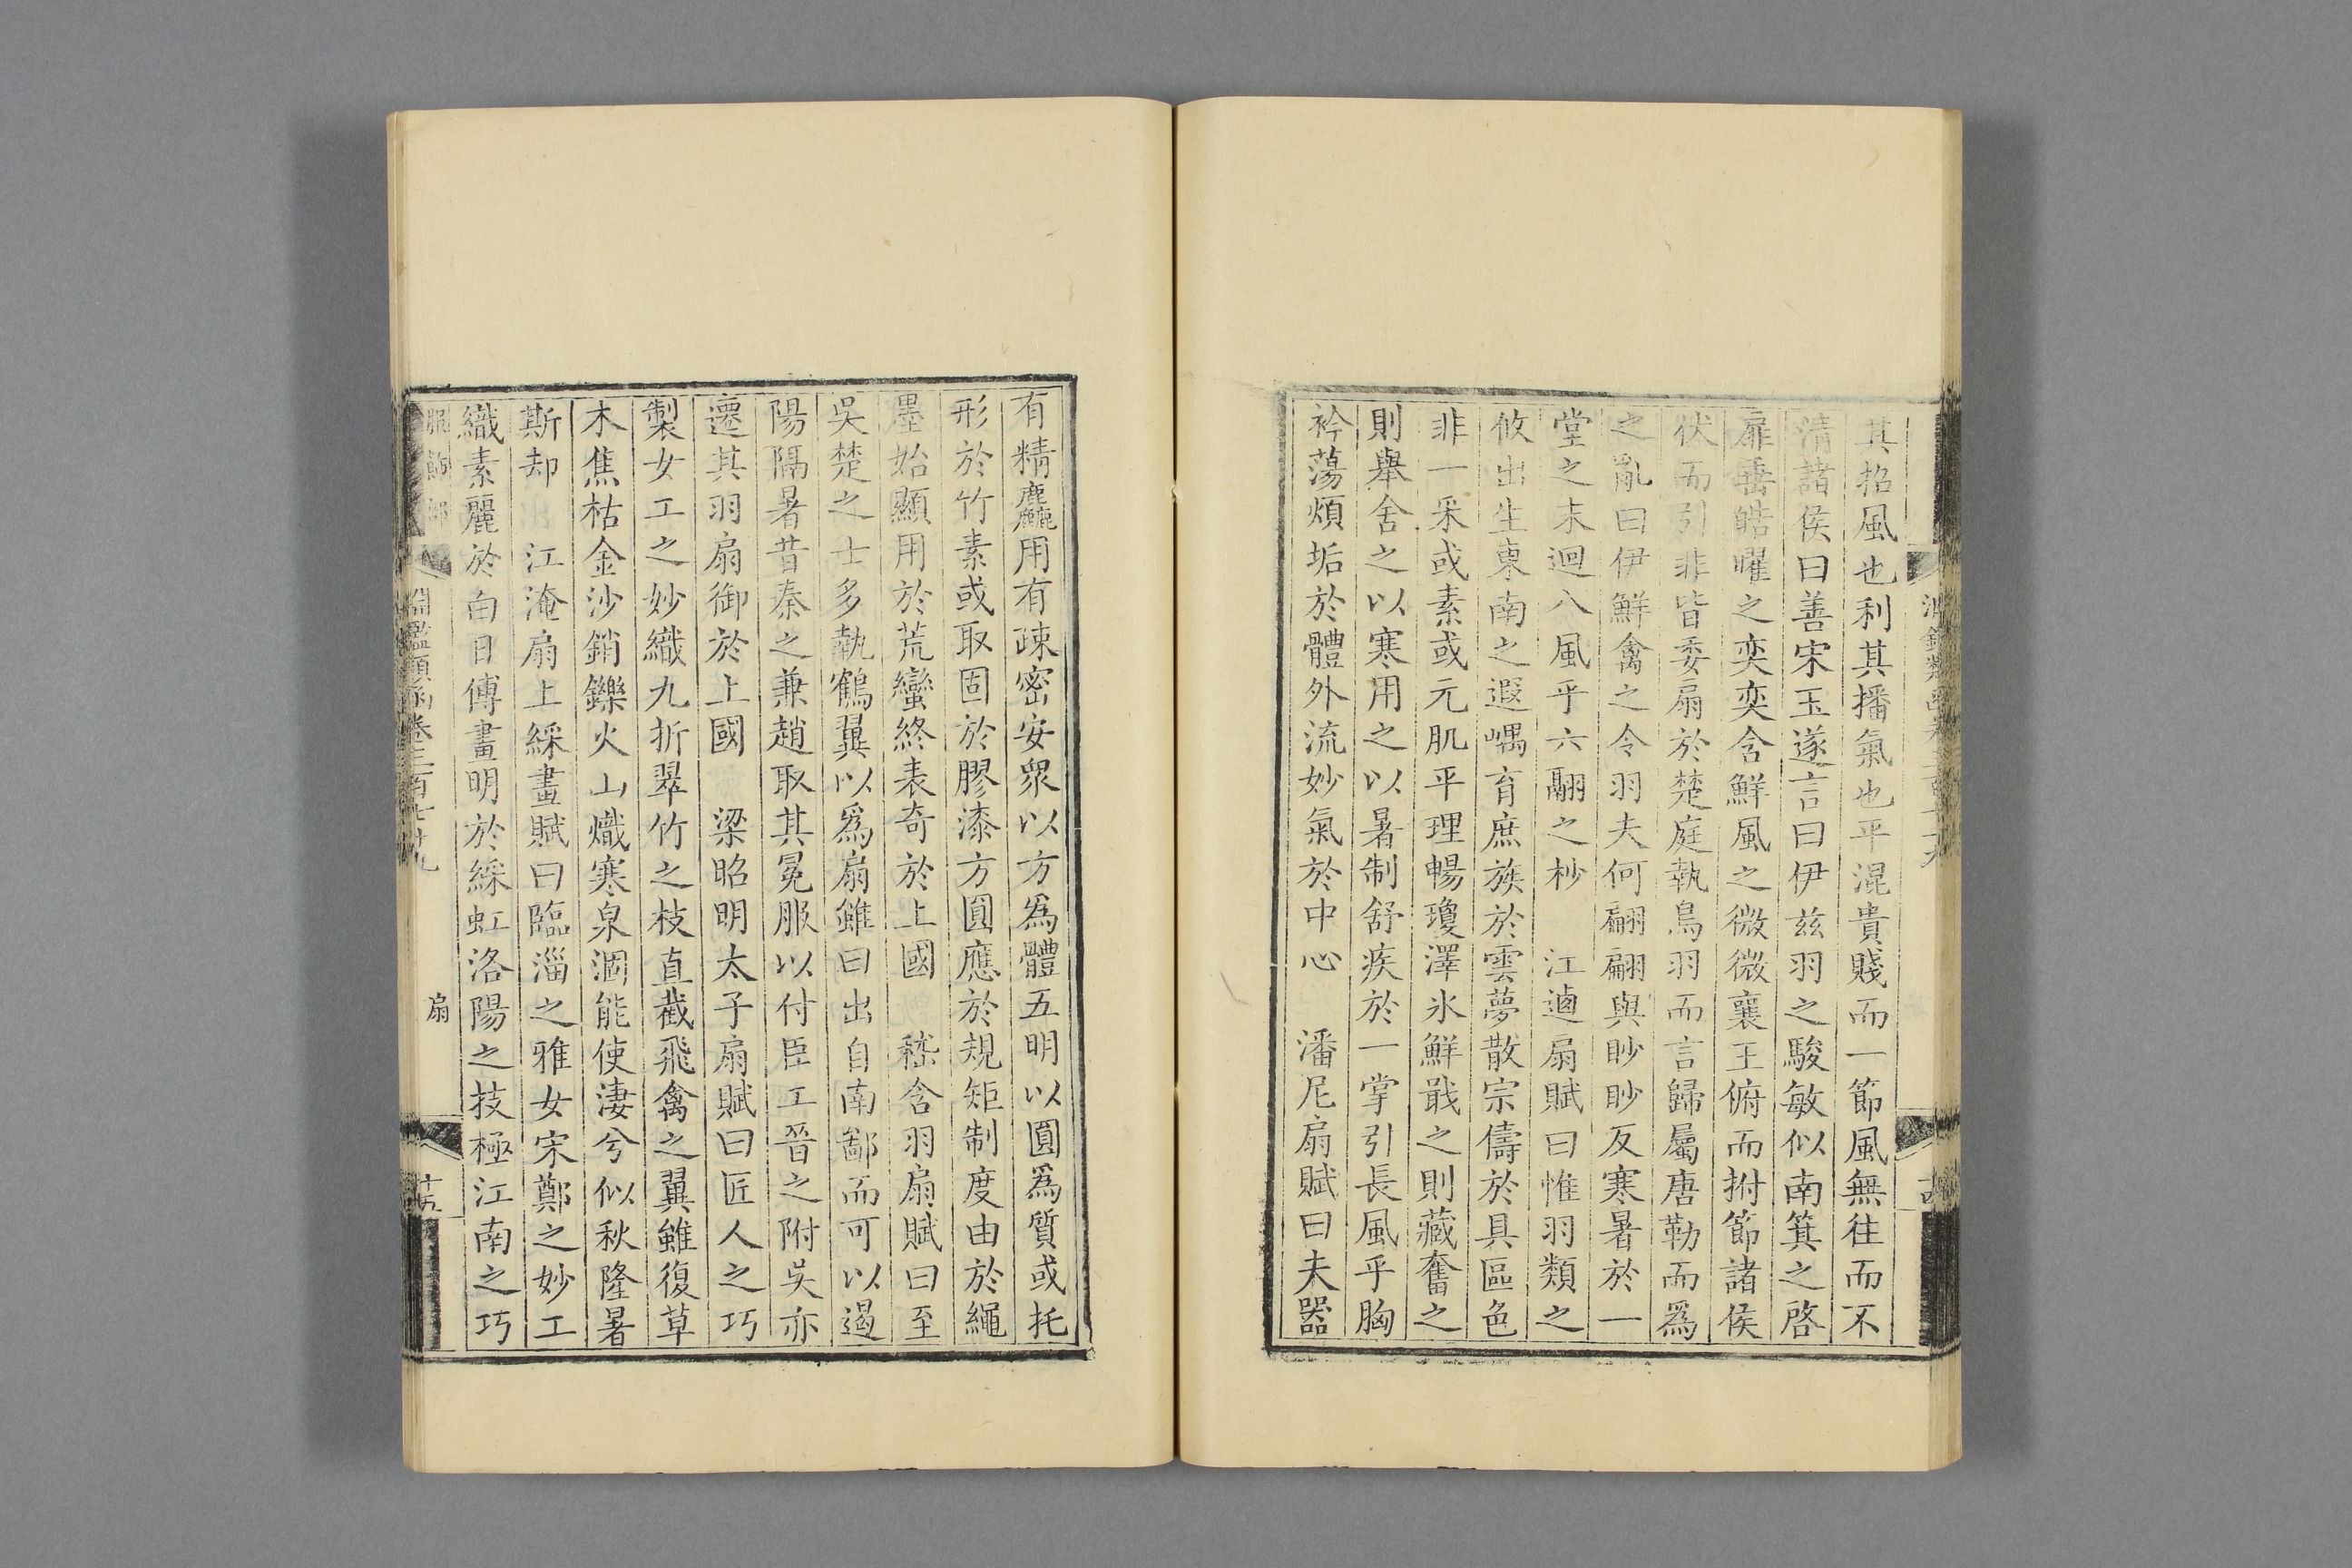 其招風也利其播氣也平混貴賤而一節風無往而不
清諸侯曰善宋玉遂言曰伊茲羽之駿敏似南箕之啓
扉垂皓曜之奕奕含鮮風之微微襄王俯而拊節諸侯
伏而引非皆委扇於楚庭執鳥羽而言歸屬唐勒而爲
之亂曰伊鮮禽之令羽夫何翩翩與眇眇反寒暑於一
堂之末迴八風乎六翮之杪 江逌扇賦曰惟羽類之
攸出生東南之遐嵎育庶族於雲夢散宗儔於具區色
非一采或素或元肌平理暢瓊澤氷鮮戢之則藏奮之
則舉舍之以寒用之以暑制舒疾於一掌引長風乎胸
衿蕩煩垢於體外流妙氣於中心 潘尼扇賦曰夫器
有精麤用有疎密安衆以方爲體五明以圓爲質或托
形於竹素或取固於膠漆方圓應於規矩制度由於繩
墨始顯用於荒蠻終表奇於上國 嵇含羽扇賦曰至
吳楚之士多執鶴翼以爲扇雖曰出自南鄙而可以遏
陽隔暑昔秦之兼趙取其冕服以付臣工晉之附吳亦
遷其羽扇御於上國 梁昭明太子扇賦曰匠人之巧
製女工之妙織九折翠竹之枝直截飛禽之翼雖復草
木焦枯金沙銷鑠火山熾寒泉涸能使淒兮似秋隆暑
斯却 江淹扇上綵畫賦曰臨淄之雅女宋鄭之妙工
織素麗於白日傅畫明於綵虹洛陽之技極江南之巧
服飾部 淵鑑類函卷三百七十九 扇 十五